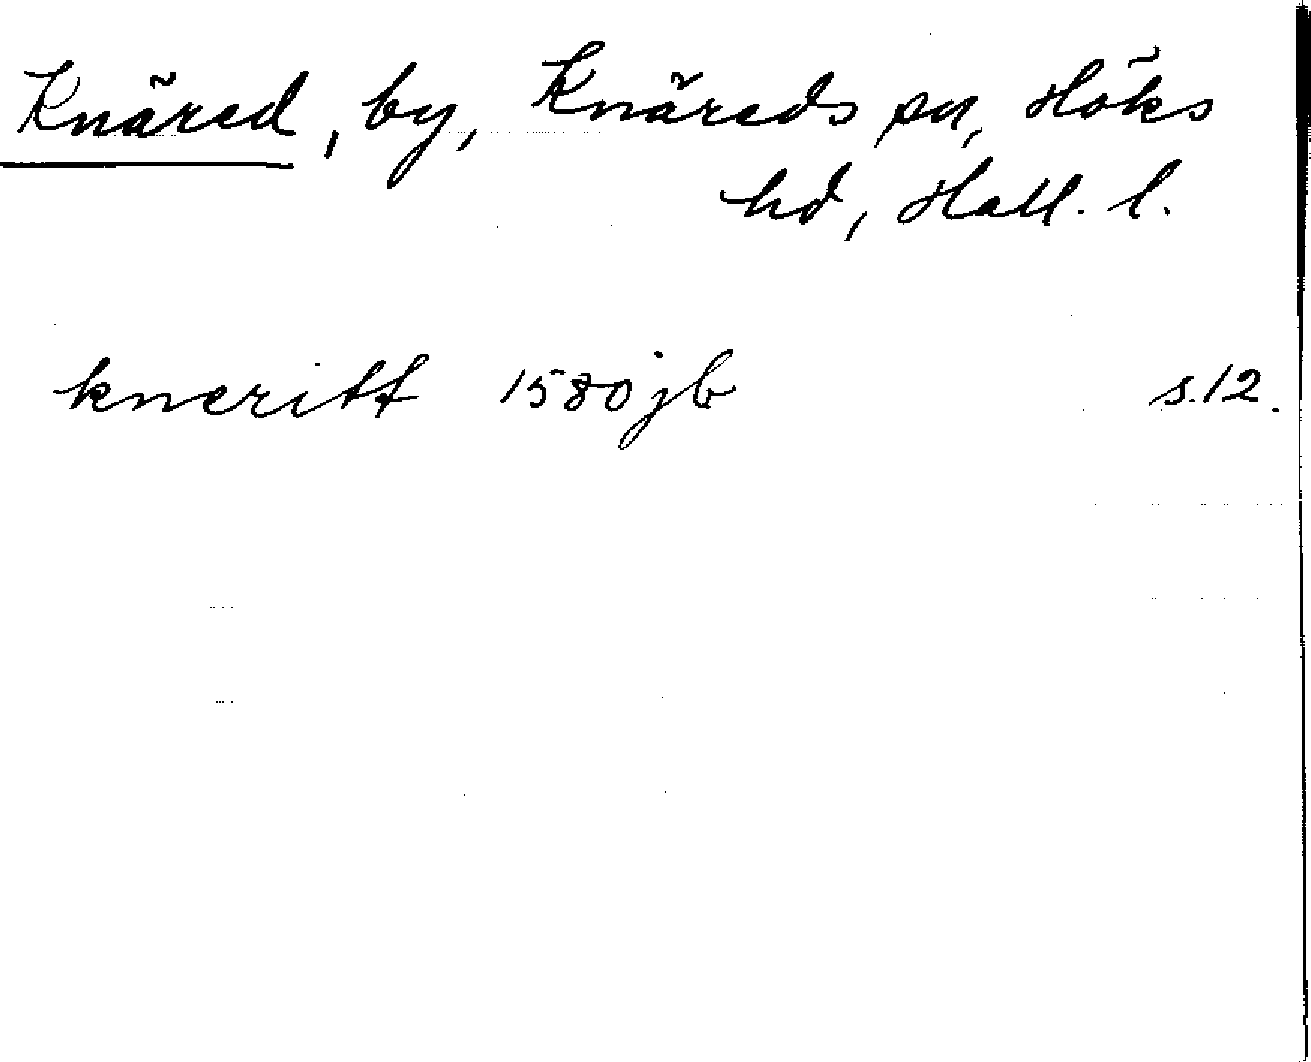 Knäred, by, Knäreds sn, Höks
hd, Hall. l.
kneritt 1580 jb s. 12.